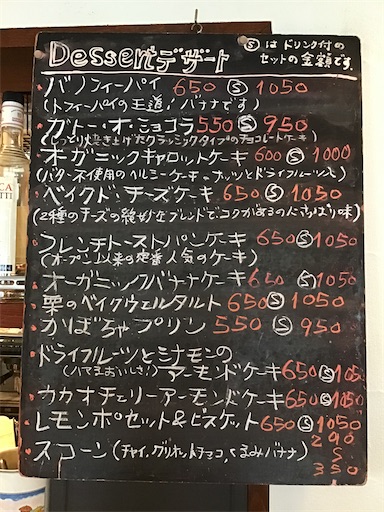 Dessert デザート
Ⓢ は ドリンク付の
セットの金額です。
バノフィーパイ 650 Ⓢ 1050
(トフィーパイの王道! バナナです)
ガトー・オ・ショコラ 550 Ⓢ 950
(しっとり焼き上げたクラシックタイプのチョコレートケーキ)
オーガニックキャロットケーキ 600 Ⓢ 1000
(バター不使用のヘルシーケーキ ナッツとドライフルーツ入)
ベイクド・チーズケーキ 650 Ⓢ 1050
(2種のチーズの絶妙なブレンドで、コクがあるのにさっぱり味)
フレンチトーストパンケーキ 650 Ⓢ 1050
(オープン以来の定番人気のケーキ)
オーガニックバナナケーキ 650 Ⓢ 1050
栗のベイクウェルタルト 650 Ⓢ 1050
かぼちゃプリン 550 Ⓢ 950
ドライフルーツとシナモンの
(ハマるおいしさ!) アーモンドケーキ 650 Ⓢ 1050
カカオチェリーアーモンドケーキ 650 Ⓢ 1050
レモンポセット&ビスケット 650 Ⓢ 1050
スコーン (チャイ, トマコ, くるみバナナ) 290
S
350